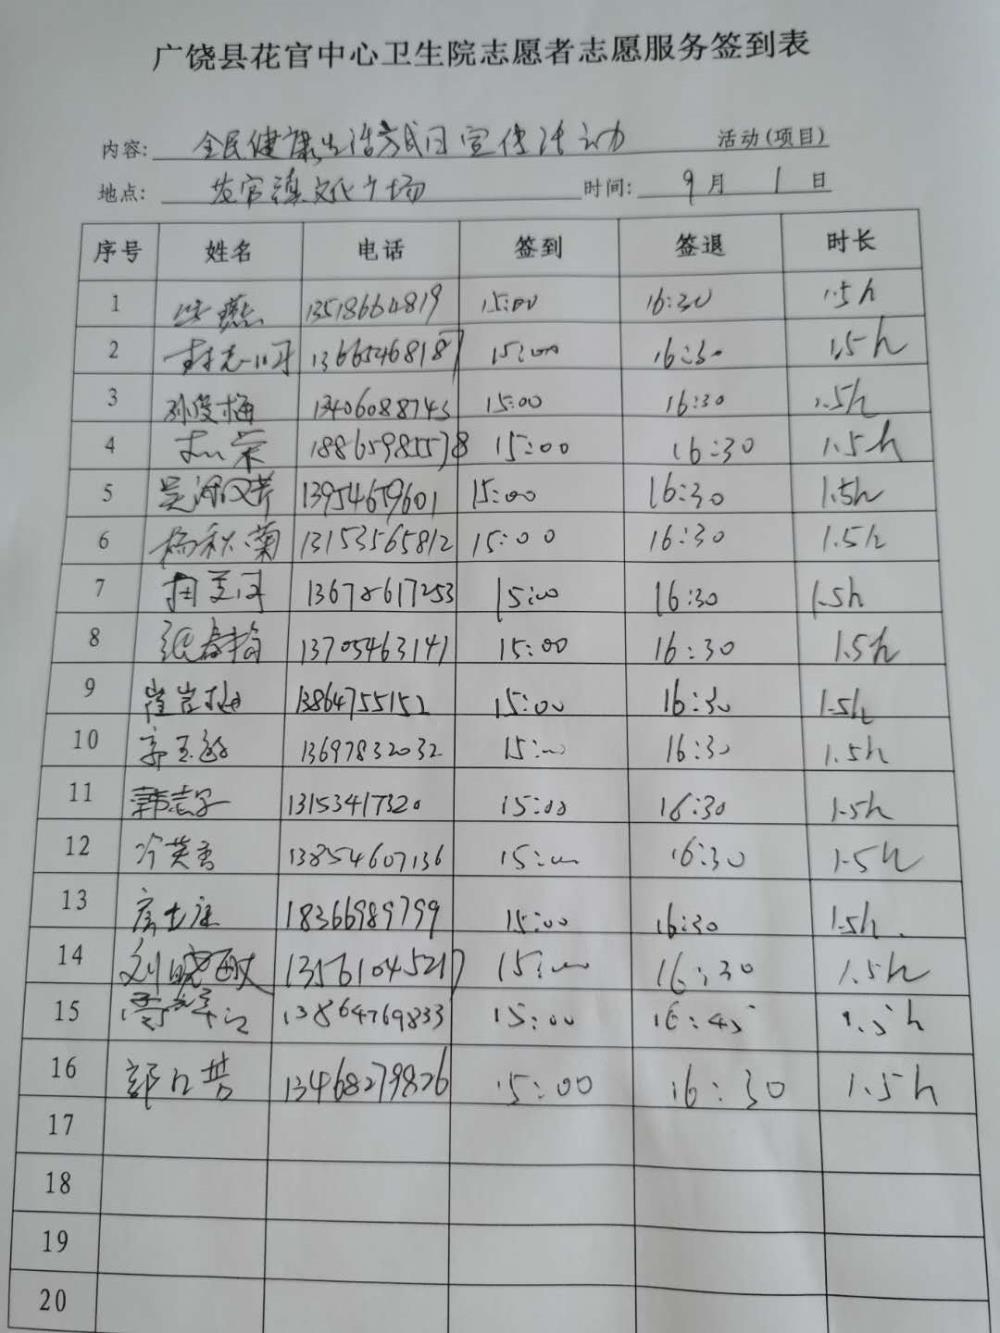 广饶县花官中心卫生院志愿者志愿服务签到表
内容: 全民健康生活方式日宣传活动 活动(项目)
地点: 花官镇文化广场 时间: 9月1日
序号 姓名 电话 签到 签退 时长
1 燕 13518664819 15:00 16:30 1.5h
2 13665468187 15:00 16:30 1.5h
3 孙俊梅 13406088743 15:00 16:30 1.5h
4 荣 18865985578 15:00 16:30 1.5h
5 吴 13954679601 15:00 16:30 1.5h
6 杨秋菊 13153565812 15:00 16:30 1.5h
7 13678617253 15:00 16:30 1.5h
8 张春梅 13705463141 15:00 16:30 1.5h
9 13864755152 15:00 16:30 1.5h
10 13697832032 15:00 16:30 1.5h
11 韩志 13153417320 15:00 16:30 1.5h
12 冷英 13854607136 15:00 16:30 1.5h
13 18366989799 15:00 16:30 1.5h.
14 刘晓敏 13561045217 15:00 16:30 1.5h
15 13864769833 15:00 16:45 1.5h
16 13468279826 15:00 16:30 1.5h
17
18
19
20